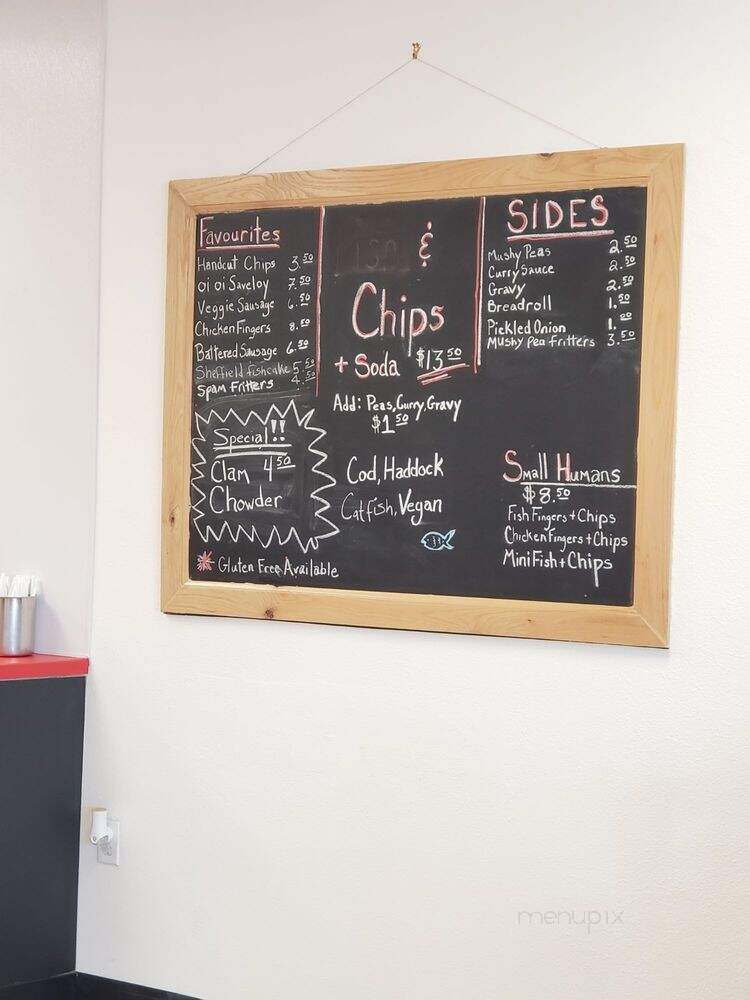 Favourites
Handcut Chips 3.50
oi oi Saveloy 7.50
Veggie Sausage 6.50
Chicken Fingers 8.50
Battered Sausage 6.50
Sheffield fishcake 5.50
Spam Fritters 4.50
Special!!
Clam 4.50
Chowder
Gluten Free Available
&
Chips
+ Soda $13.50
Add: Peas, Curry, Gravy
$1.50
Cod, Haddock
Catfish, Vegan
SIDES
Mushy Peas 2.50
Curry Sauce 2.50
Gravy 2.50
Breadroll 1.50
Pickled Onion 1.00
Mushy Pea Fritters 3.50
Small Humans
$8.50
Fish Fingers + Chips
Chicken Fingers + Chips
Mini Fish + Chips
menupix